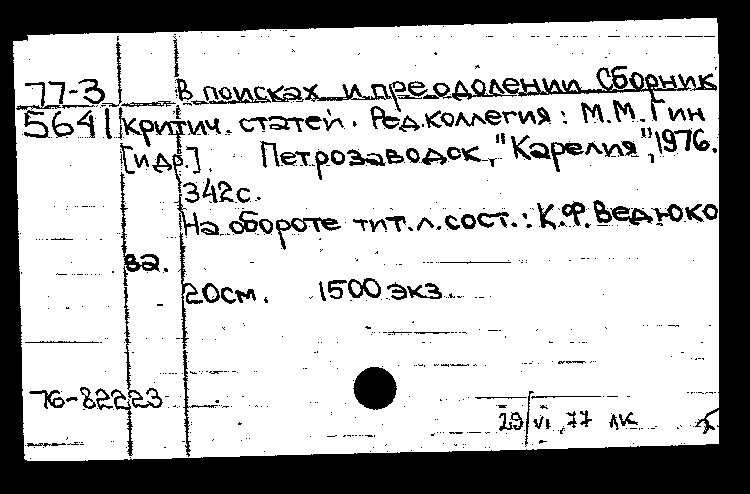 77-3 В поисках и преодолении Сборник
5641 критич. статей. Ред.коллегия: М.М.Гин
[и др.]. Петрозаводск, "Карелия", 1976.
342с.
На обороте тит.л.сост.: К.Ф.Ведюко
ва.
20см. 1500 экз.
76-82223
29/VI 77 ЛК